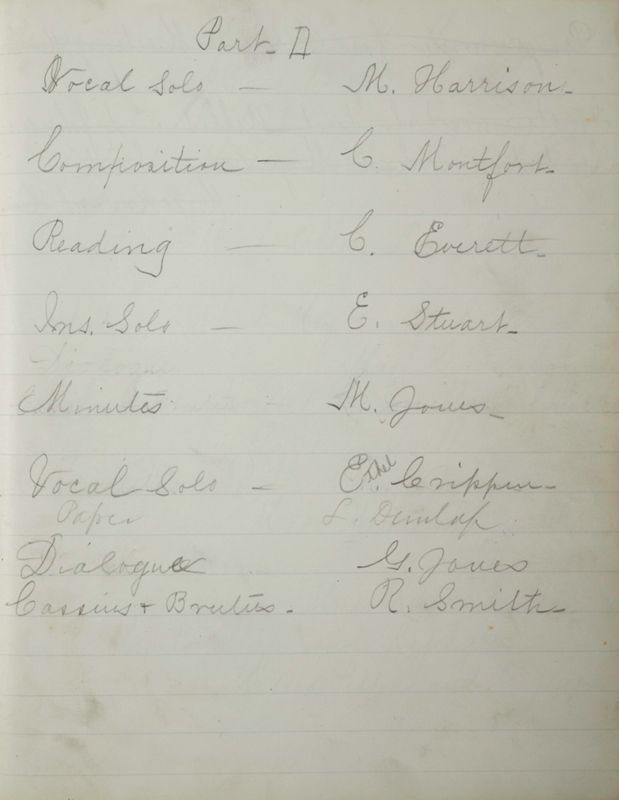 Part II
Vocal Solo — M. Harrison.
Composition — C. Montfort.
Reading — C. Everett.
Ins. Solo — E. Stuart.
Minutes M. Jones.
Vocal Solo — Ethel. Crippen.
Paper L. Dunlap.
Dialogue G. Jones
Cassius + Brutus. R. Smith.